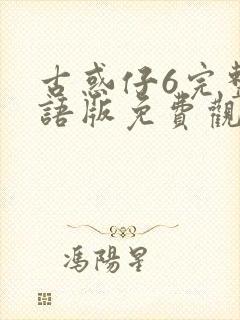 古惑仔6完整
語版免費觀
馮陽星